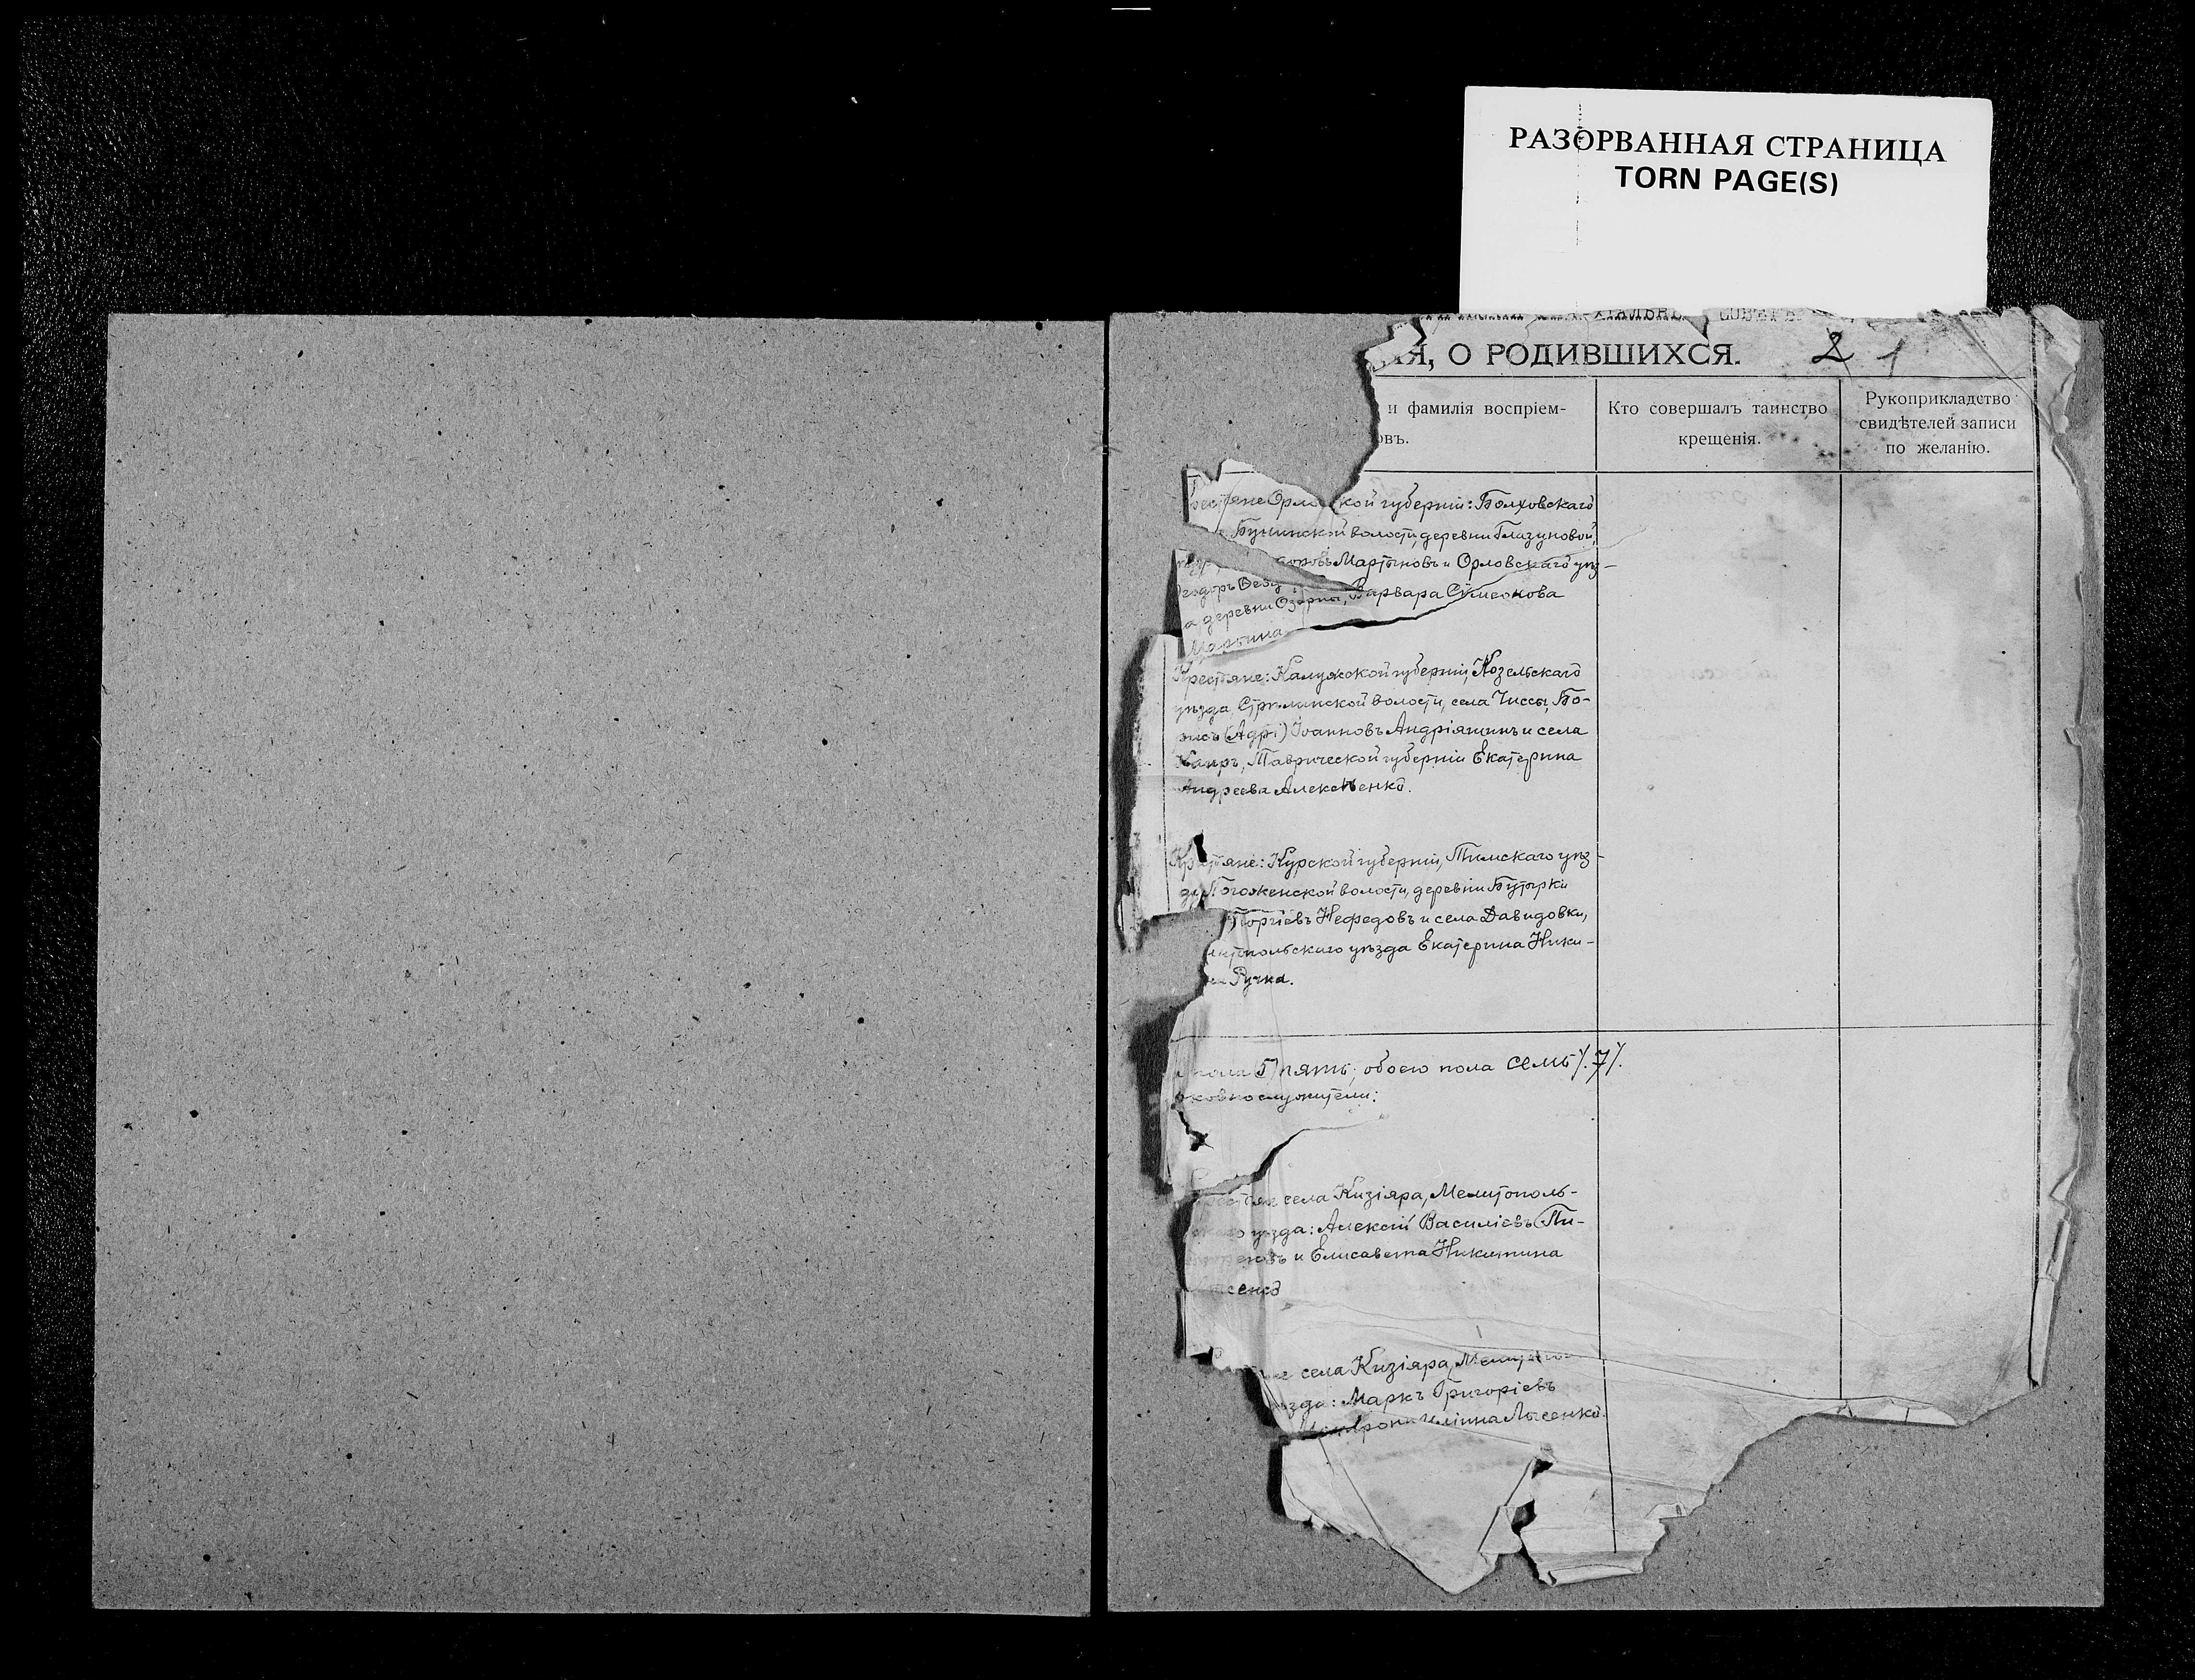 РАЗОРВАННАЯ СТРАНИЦА
TORN PAGE(S)
Я, О РОДИВШИХСЯ. 2 1
и фамилія воспріем-
овъ.
Кто совершалъ таинство
крещенія.
Рукоприкладство
свидѣтелей записи
по желанію.
Орло кой губерніи: Болховскаго
Бунинской волости, деревни Глазуновой,
Мартыновъ и Орловскаго уѣз-
Ѳеодоръ
а деревни Озерны, Варвара Сѵмеонова
Крестьяне: Калужской губерніи, Козельскаго
уѣзда, волости, села Чиссы, Бо-
рисъ (Адрі) Іоанновъ Андріяшинъ и села
Каиръ, Таврической губерніи Екатерина
Андреева Алексѣенко.
Крестьяне: Курской губерніи, Тимскаго уѣз-
да волости, деревни Бутырки
оргіевъ Нефедовъ и села Давидовки,
литопольскаго уѣзда Екатерина Ники-
на Ручка.
пола 5) пять; обоего пола семь /.7/.
рковнослужители:
села Кизіяра, Мелитополь-
скаго уѣзда: Алексій Василіевъ Пи-
и Елисавета Никитина
сенко
села Кизіяра, Мелито
ѣзда: Маркъ Григоріевъ
Лысенко.